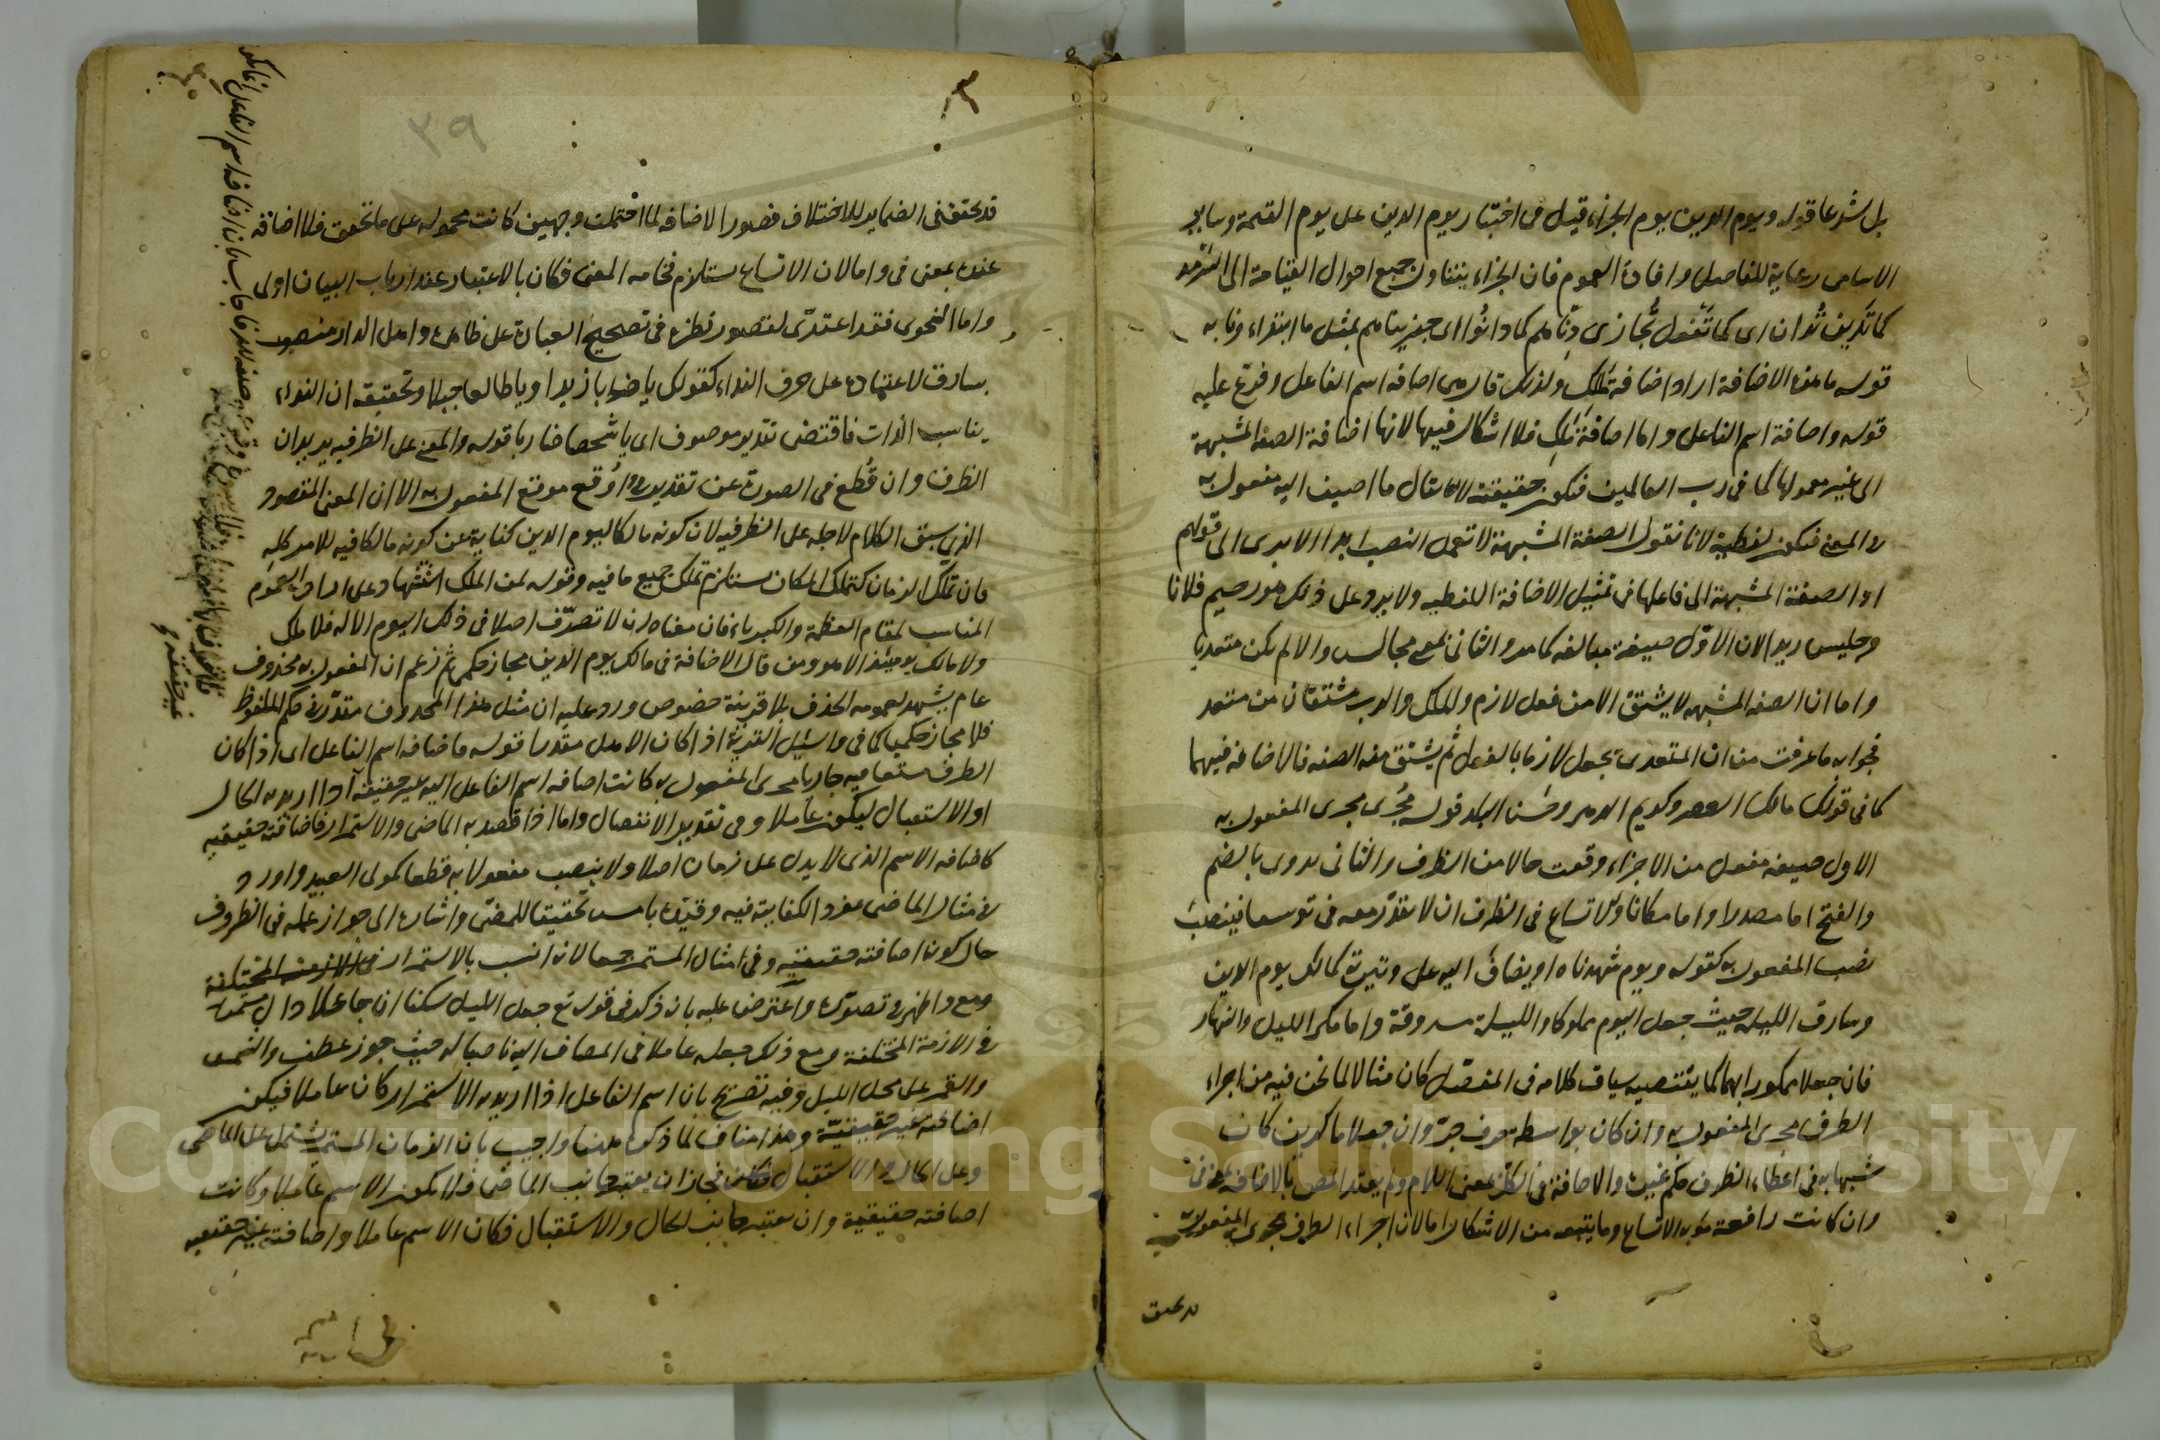 بل شرعا قوله ويوم الدين يوم الجزاء قيل في اختيار يوم الدين على يوم القيمة وساير
الاسامى رعاية للفاصل وافادة العموم فان الجزاء يتناول جميع احوال القيامة الى السرمد
كما تدين تدان اى كما تفعل تجازى دناهم كما دانوا اى جزيناهم بمثل ما ابتدأوا به
قوله ما هذه الاضافة اراد اضافة ملك ولذلك قال هى اضافة اسم الفاعل وفرع عليه
قوله واضافة اسم الفاعل واما اضافة ملك فلا اشكال فيها لانها اضافة الصفة المشبهة
الى غير معمولها كما في رب العالمين فتكون حقيقية لا يقال ما اضيف اليه مفعول به
في المعنى فتكون لفظية لانا نقول الصفة المشبهة لا تعمل النصب ابدا الا يرى الى قولهم
او الصفة المشبهة الى فاعلها في تمثيل الاضافة اللفظية ولا يرد على ذلك هو رحيم فلانا
وجليس زيد الان الاول صيغة مبالغة كما مر والثانى بمعنى مجالس والا لم يكن متعديا
واما ان الصفة المشبهة لا يشتق الا من فعل لازم والملك والرب مشتقان من متعد
فجوابه ما عرفت من ان المتعدى يجعل لازما بالنقل ثم يشتق منه الصفة فالاضافة فيهما
كما في قولك مالك العصر وكريم الدهر وحسن البلد قوله مجرى مجرى المفعول به
الاول صيغة مفعول من الاجراء وقعت حالا من الظرف والثانى يروى بالضم
والفتح اما مصدرا واما مكانا والاتساع في الظرف ان لا يقدر معه في توسعا فينصب
نصب المفعول به كقوله ويوم شهدناه او يضاف اليه على وتيرة كمالك يوم الدين
وسارق الليلة حيث جعل اليوم مملوكا والليلة مسروقة واما مكر الليل والنهار
فان جعلا ممكورا بهما كما يقتضيه سياق كلامه في المفصل كان مثالا لما نحن فيه من اجراء
الظرف مجرى المفعول به وان كان بواسطة حرف جر وان جعلا ماكرين كان
تشبيها به في اعطاء الظرف حكم غيره والاضافة في الكل بمعنى اللام ولم يعتد المص بالاضافة بمعنى في
وان كانت رافعة مؤنة الاتساع وما يتبعه من الاشكال اما لان اجراء الظرف مجرى المفعول به
قد تحقق
٣٩
قد تحقق في الضماير للاختلاف فصور الاضافة لما احتملت وجهين كانت محمولة على ما تحقق فلا اضافة
عنده بمعنى في واما لان الاتساع يستلزم فخامة المعنى فكان بالاعتبار عند ارباب البيان اولى
واما النحوى فقد اعتدى لقصور نظره في تصحيح العبارة على ظاهره واهل الدار منصوب
بسارق لاعتماده على حرف النداء كقولك يا ضاربا زيدا ويا طالعا جبلا وتحقيقه ان النداء
يناسب الذات فاقتضى تقدير موصوف اى يا شخصا ضاربا قوله والمعنى على الظرفية يريد ان
الظرف وان قطع في الصورة عن تقدير في واوقع موقع المفعول به الا ان المعنى المقصود
الذى سيق الكلام لاجله على الظرفية لان كونه مالكا ليوم الدين كناية عن كونه مالكا فيه للامر كله
فان تملك الزمان كتملك المكان يستلزم تملك جميع ما فيه وقوله لمن الملك استشهاد على ارادة العموم
المناسب لمقام العظمة والكبرياء فان معناه ان لا تصرف اصلا في ذلك اليوم الا له فلا ملك
ولا مالك يومئذ الا هو ومن قال الاضافة في مالك يوم الدين مجاز حكمى ثم زعم ان المفعول به محذوف
عام يشهد لعمومه الحذف بلا قرينة خصوص ورد عليه ان مثل هذا المحذوف مقدر في حكم الملفوظ
فلا مجاز حكميا كما في واسئل القرية اذا كان الاهل مقدرا قوله فاضافة اسم الفاعل اى اذا كان
الظرف متسعا فيه جاريا مجرى المفعول به كانت اضافة اسم الفاعل اليه غير حقيقية اذا اريد به الحال
او الاستقبال ليكون عاملا وفى تقدير الانفصال واما اذا قصد به الماضى والاستمرار فاضافته حقيقية
كاضافة الاسم الذى لا يدل على زمان اصلا ولا ينصب مفعولا به قطعا كمولى العبيد واورد
في مثال الماضى مفردا لكفايته فيه وقيده بامس تحقيقا للمضى واشارة الى جواز عمله في الظروف
حال كون اضافته حقيقية وفى امثال المستمر جمعا لانه انسب بالاستمرار في الازمنة المختلفة
مع واظهر في تصوره واعترض عليه بانه ذكر في قوله تع جعل الليل سكنا ان جاعلا دال مستمرة
في الازمنة المختلفة ومع ذلك جعله عاملا في المضاف اليه ناصبا له حيث جوز عطف والشمس
والقمر على محل الليل وفيه تصريح بان اسم الفاعل اذا اريد به الاستمرار كان عاملا فيكون
اضافته غير حقيقية وهذا مناف لما ذكره ههنا واجيب بان الزمان المستمر يشتمل على الماضى
وعلى الحال والاستقبال فجاز ان يعتبر جانب الماضى فلا يكون الاسم عاملا وكانت
اضافته حقيقية وان يعتبر جانب الحال والاستقبال فكان الاسم عاملا واضافته غير حقيقية